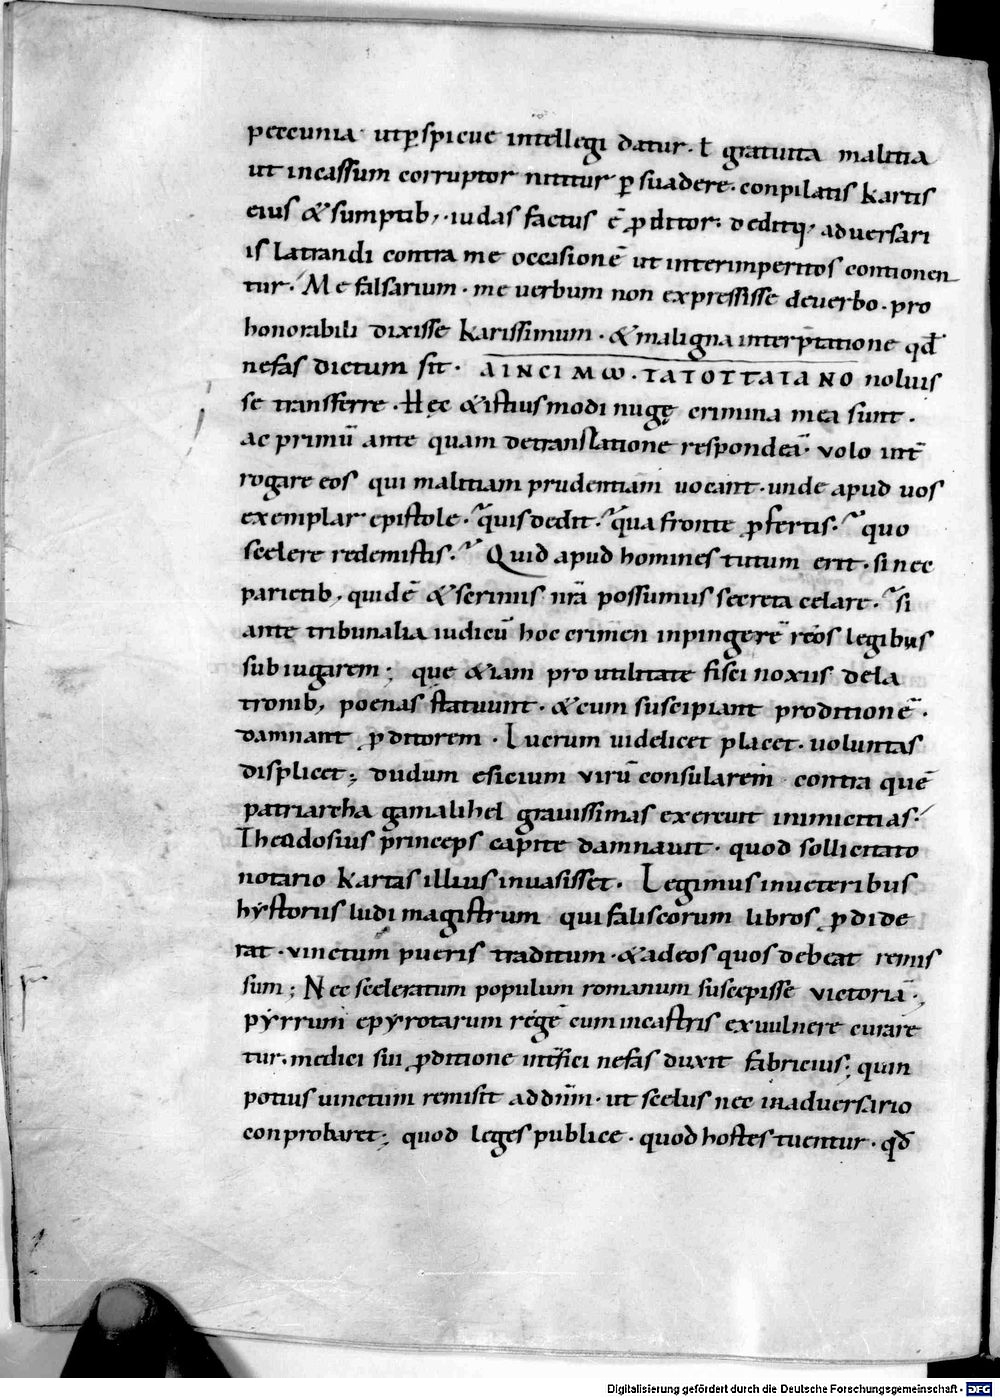 peccunia · ut ꝑspicue intellegi datur · ł gratuita malitia
ut incassum corruptor nititur ꝑsuadere · conpilatis kartis
eius & sumptib; · iudas factus ē ꝓditor · deditq; adversari
is latrandi contra me occasionē ut inter imperitos contionen
tur · Me falsarium · me verbum non expressisse de verbo · pro
honorabili dixisse karissimum · & maligna interp̄tatione qđ
nefas dictum sit · AINCIMω · TATOTTATANO noluis
se transferre · Hęc & istius modi nugę crimina mea sunt ·
ac primū ante quam de translatione respondeā · volo int̄
rogare eos qui malitiam prudentiam vocant · unde apud vos
exemplar epistole · quis dedit · qua fronte ꝓfertis · quo
scelere redemistis · Quid apud homines tutum erit · si nec
parietib; quidē & scriniis nr̄a possumus secreta celare · si
ante tribunalia iudicū hoc crimen inpingerē reos legibus
subiugarem ; que &iam pro utilitate fisci noxiis dela
tronib; poenas statuunt · & cum suscipiant proditionē ·
damnant ꝓditorem · Lucrum videlicet placet · voluntas
displicet ; dudum esicium virū consularem contra quē
patriarcha gamalihel gravissimas exercuit inimicitias ·
Theodosius princeps capite damnavit · quod sollicitato
notario kartas illius invasisset · Legimus in veteribus
hystoriis ludi magistrum qui faliscorum libros ꝓdide
rat · vinctum pueris traditum · & ad eos quos debeat remis
sum ; Nec sceleratum populum romanum suscepisse victoriā ·
pyrrum epyrotarum regē cum in castris ex vulnere curare
tur · medici sui ꝓditione int̄fici nefas duxit fabricius ; quin
potius vinctum remisit ad dn̄m · ut scelus nec in adversario
conprobaret ; quod leges publice · quod hostes tuentur · qđ
Digitalisierung gefördert durch die Deutsche Forschungsgemeinschaft - DFG